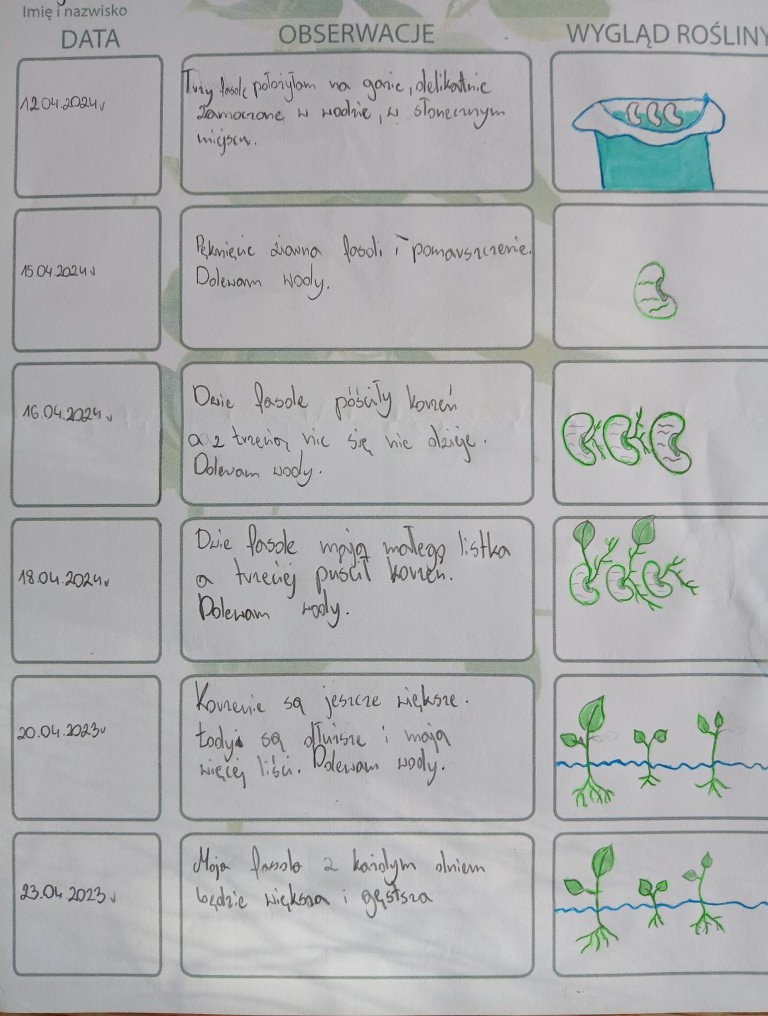 Imię i nazwisko
DATA
OBSERWACJE
WYGLĄD ROŚLINY
12.04.2024r
Trzy fasole położyłam na gazie, delikatnie
zamoczone w wodzie, w słonecznym
miejscu.
15.04.2024r
Pęknięcie ziarna fasoli i pomarszczenie.
Dolewam wody.
16.04.2024r
Dwie fasole pościły korzeń
a z trzecią nic się nie dzieje.
Dolewam wody.
18.04.2024r
Dwie fasole mają małego listka
a trzeciej puścił korzeń.
Dolewam wody.
20.04.2023r
Korzenie są jeszcze większe.
Łodygi są dłuższe i mają
więcej liści. Dolewam wody.
23.04.2023r
Moja fasola z każdym dniem
będzie większa i gęstsza